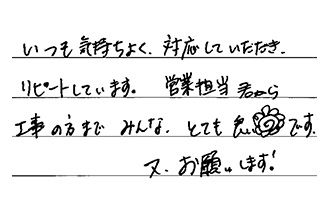 いつも気持ちよく、対応していただき、
リピートしています。 営業担当者から
工事の方まで みんな、とても良いです。
又、お願いします！